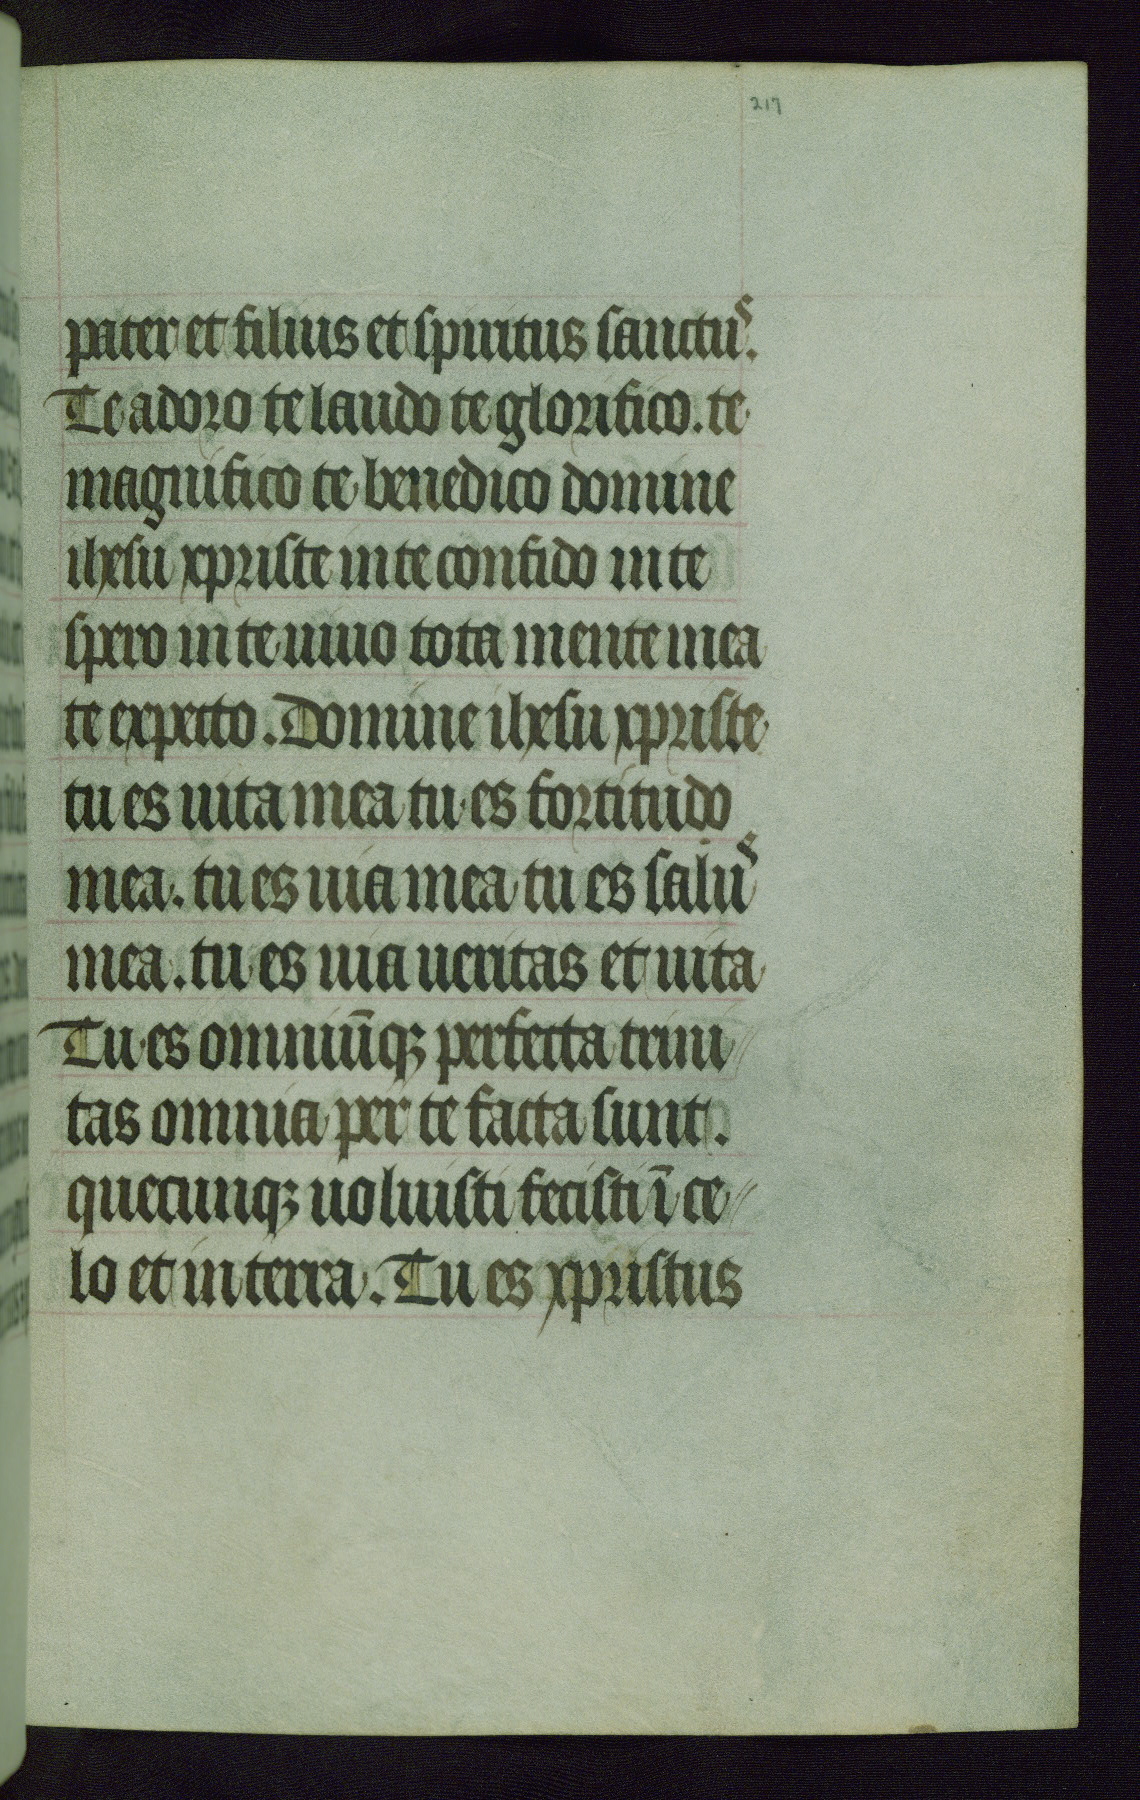 217
pater et filius et spiritus sanctus.
Te adoro te laudo te glorifico. te
magnifico te benedico domine
ihesu xpriste in te confido in te
spero in te uiuo tota mente mea
te expecto. Domine ihesu xpriste
tu es uita mea tu es fortitudo
mea. tu es uia mea tu es salus
mea. tu es uia ueritas et uita
Tu es omniūqꝫ perfecta trini//
tas omnia per te facta sunt.
quecunqꝫ uoluisti fecisti ī ce//
lo et in terra. Tu es xpristus